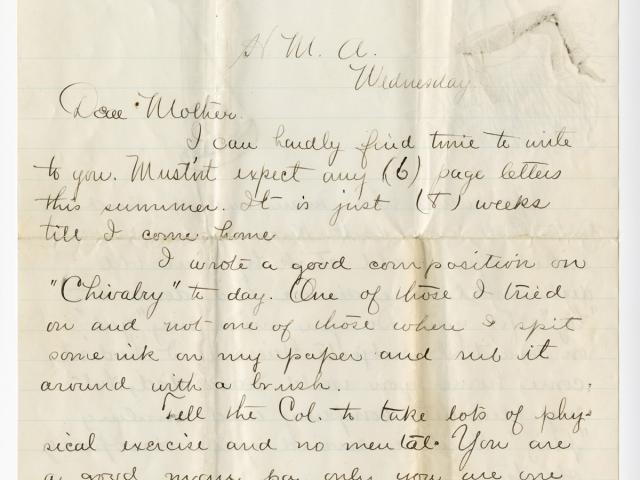 H. M. A.
Wednesday
Dear Mother.
I can hardly find time to write
to you. Mustn't expect any (6) page letters
this summer. It is just (8) weeks
till I come home
I wrote a good composition on
"Chivalry" to day. One of those I tried
on and not one of those where I spit
some ink on my paper and rub it
around with a brush.
Tell the Col. to take lots of phy-
sical exercise and no mental. You are
a good many only you are one